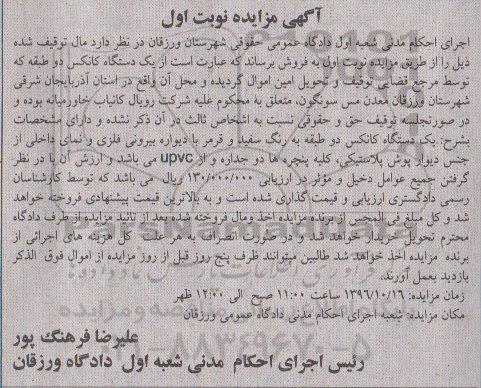 آگهی مزایده نوبت اول
اجرای احکام مدنی شعبه اول دادگاه عمومی حقوقی شهرستان ورزقان در نظر دارد مال توقیف شده
ذیل را از طریق مزایده نوبت اول به فروش برساند که عبارت است از یک دستگاه کانکس دو طبقه که
توسط مرجع قضایی توقیف و تحویل امین اموال گردیده و محل آن واقع در استان آذربایجان شرقی
شهرستان ورزقان معدن مس سونگون، متعلق به محکوم علیه شرکت رویال کانیاب خاورمیانه بوده و
در صورتجلسه توقیف حق و حقوقی نسبت به اشخاص ثالث در آن ذکر نشده و دارای مشخصات
بشرح: یک دستگاه کانکس دو طبقه به رنگ سفید و قرمز با دیواره بیرونی فلزی و نمای داخلی از
جنس دیوار پوش پلاستیکی، کلیه پنجره ها دو جداره و از upvc می باشد و ارزش آن با در نظر
گرفتن جمیع عوامل دخیل و مؤثر در ارزیابی ۱۳۰/۰۰۰/۰۰۰ ریال می باشد که توسط کارشناسان
رسمی دادگستری ارزیابی و قیمت گذاری شده است و به بالاترین قیمت پیشنهادی فروخته خواهد
شد و کل مبلغ فی المجلس از برنده مزایده اخذ ومال فروخته شده بعد از تائید مزایده از طرف دادگاه
محترم تحویل خریدار خواهد شد و در صورت انصراف به هر علت کل هزینه های اجرائی از
برنده مزایده اخذ خواهد شد طالبین میتوانند ظرف پنج روز قبل از روز مزایده از اموال فوق الذکر
بازدید بعمل آورند.
زمان مزایده: ۱۳۹۶/۱۰/۱۶ ساعت ۱۱:۰۰ صبح الی ۱۲:۰۰ ظهر
مکان مزایده: شعبه اجرای احکام مدنی دادگاه عمومی ورزقان
علیرضا فرهنگ پور
رئیس اجرای احکام مدنی شعبه اول دادگاه ورزقان
ParsNamadData
۰۲۱-۸۸۳۴۹۶۷۰-۵